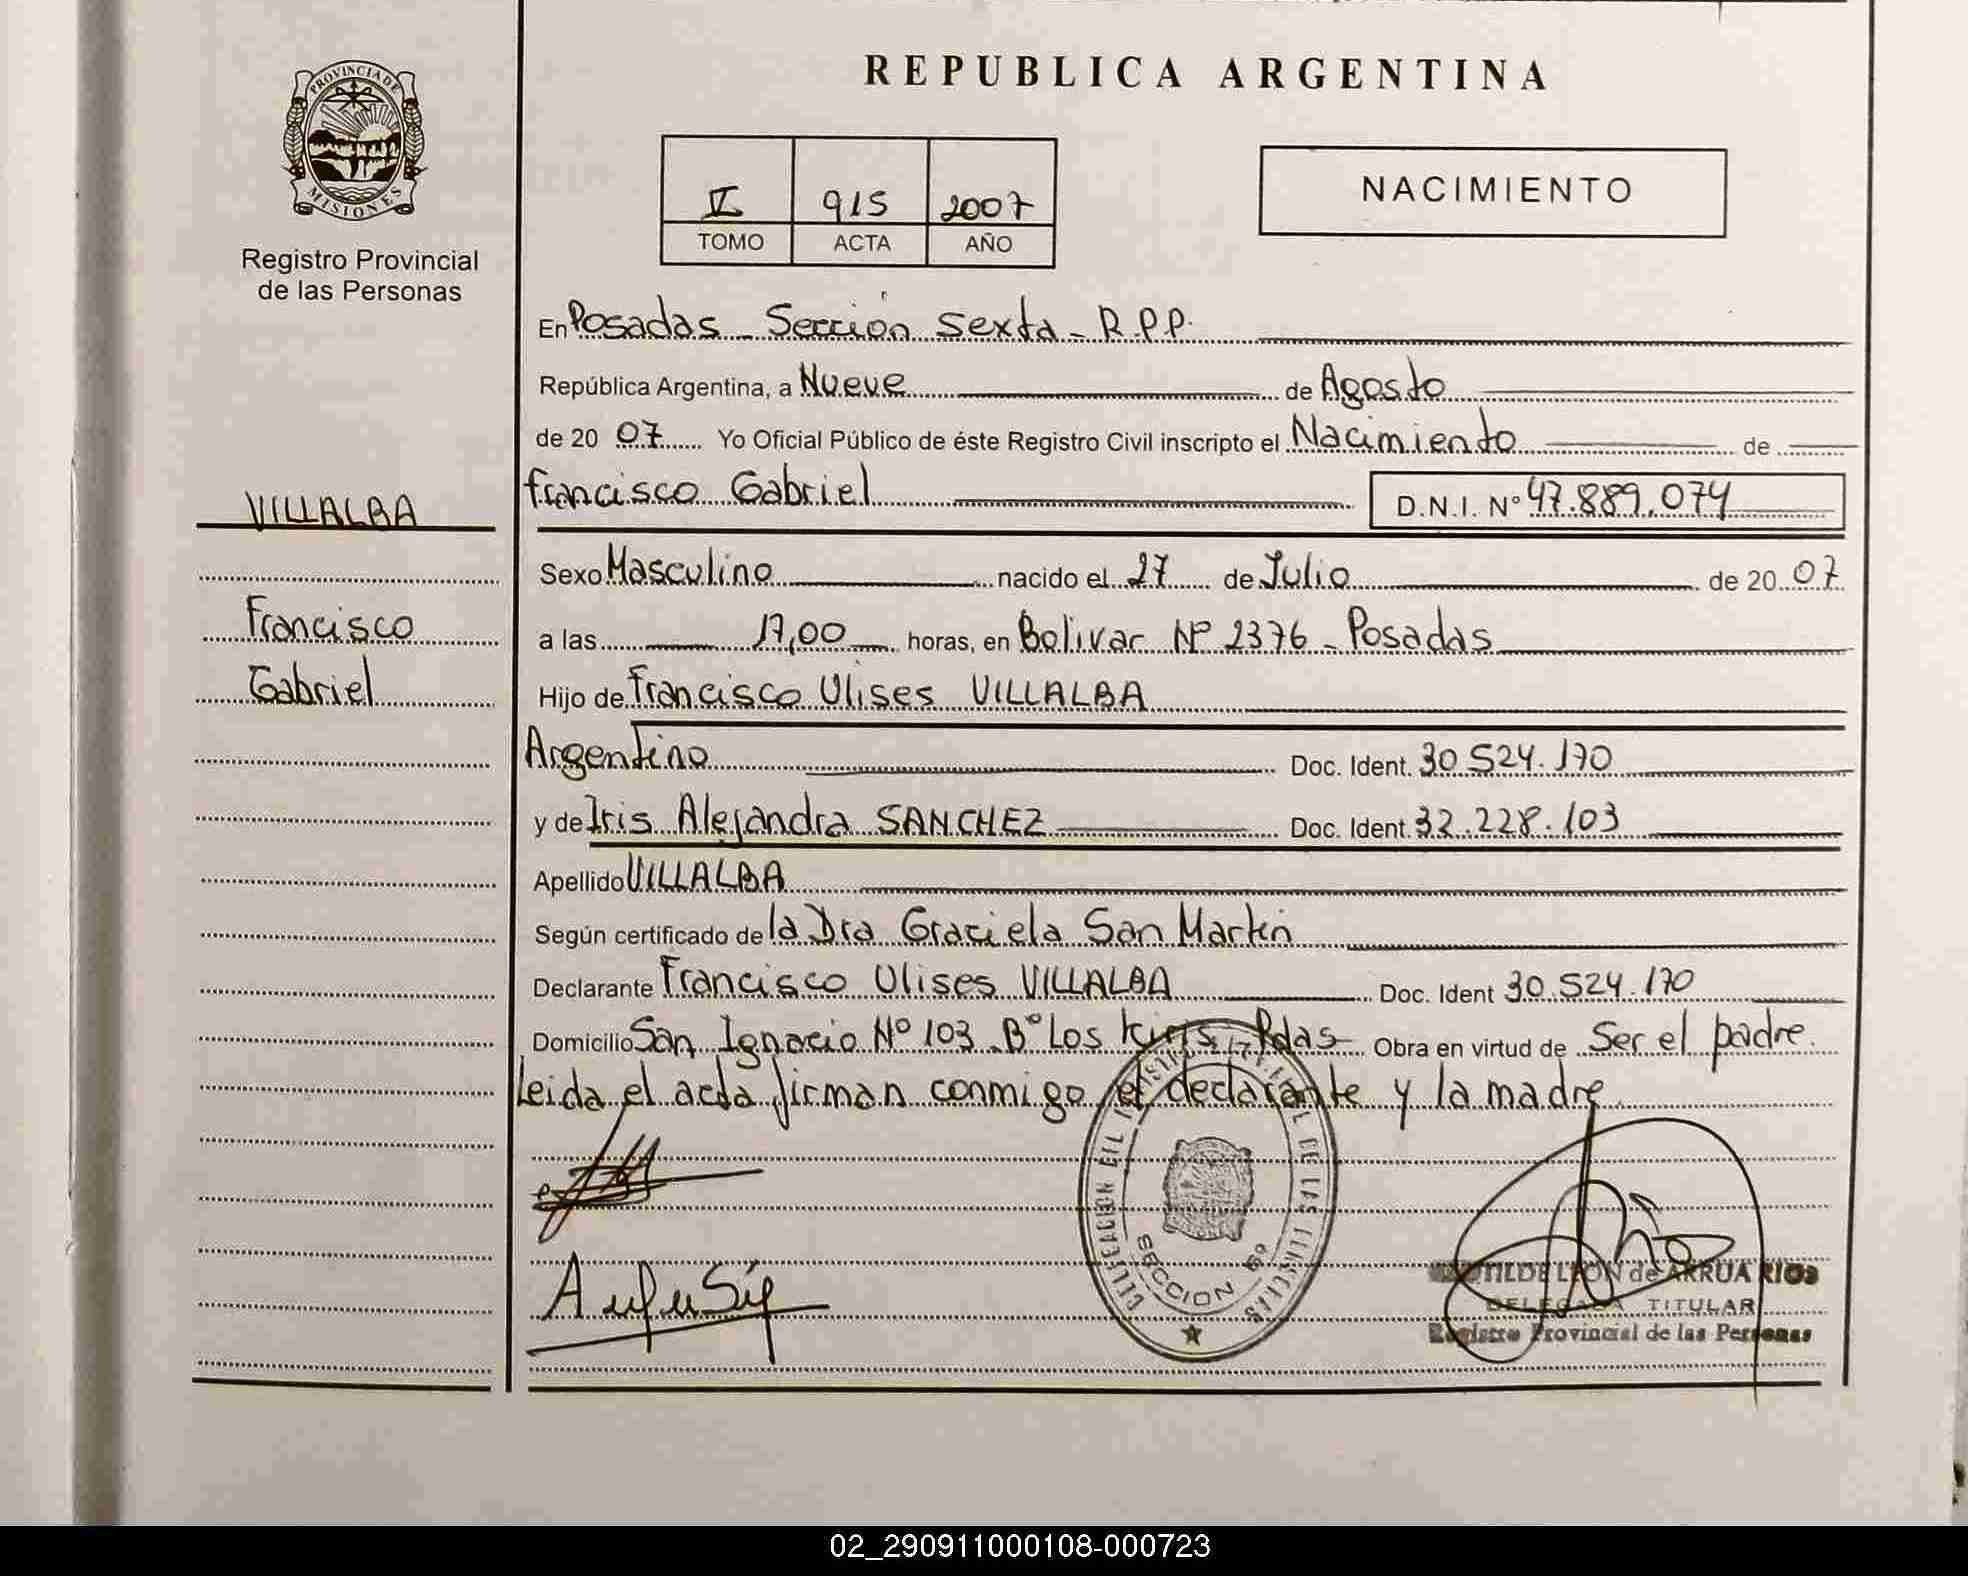 PROVINCIA DE
MISIONES
Registro Provincial
de las Personas
VILLALBA
Francisco
Gabriel
REPUBLICA ARGENTINA
V 915 2007
TOMO ACTA AÑO
NACIMIENTO
En Posadas - Sección Sexta - R.P.P.
República Argentina, a Nueve de Agosto
de 20 07 Yo Oficial Público de éste Registro Civil inscripto el Nacimiento de
Francisco Gabriel D.N.I. Nº 47.889.074
Sexo Masculino nacido el 27 de Julio de 20 07
a las 17,00 horas, en Bolivar Nº 2376 - Posadas
Hijo de Francisco Ulises VILLALBA
Argentino Doc. Ident. 30.524.170
y de Iris Alejandra SANCHEZ Doc. Ident. 32.228.103
Apellido VILLALBA
Según certificado de la Dra Graciela San Martin
Declarante Francisco Ulises VILLALBA Doc. Ident 30.524.170
Domicilio San Ignacio Nº 103 Bº Los Pdas Obra en virtud de Ser el padre.
Leida el acta firman conmigo el declarante y la madre
SECCION 6º
LEON de ARRUA RIOS
DELEGADA TITULAR
Registro Provincial de las Personas
02_290911000108-000723